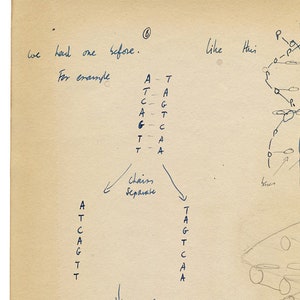 ⑥
we had one before. like this
For example
A - T
T - A
C - G
A - T
G - C
T - A
T - A
chains
separate
A
T
C
A
G
T
T
T
A
G
T
C
A
A